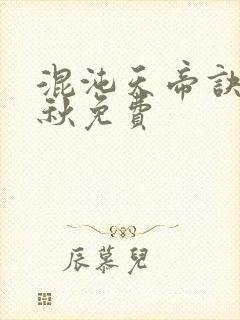 混沌天帝訣
秋免費
辰慕兒